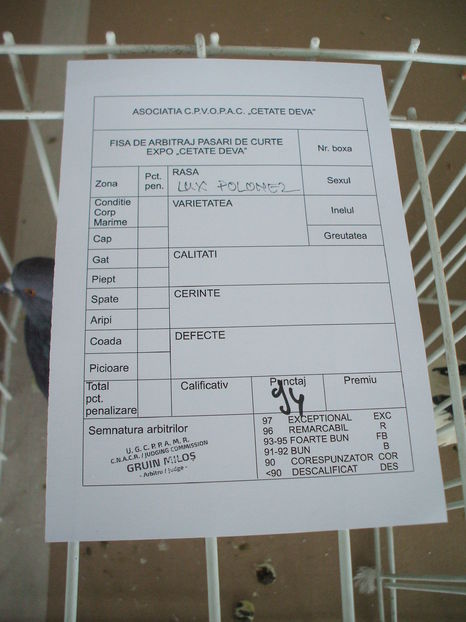 ASOCIATIA C.P.V.O.P.A.C. „CETATE DEVA"
FISA DE ARBITRAJ PASARI DE CURTE
EXPO „CETATE DEVA"
Nr. boxa
Zona
Pct. pen.
RASA
LUX POLONEZ
Sexul
Conditie
Corp
Marime
VARIETATEA
Inelul
Cap
Greutatea
Gat
CALITATI
Piept
Spate
CERINTE
Aripi
Coada
DEFECTE
Picioare
Total
pct.
penalizare
Calificativ
Punctaj
94
Premiu
Semnatura arbitrilor
U. G. C. P. P. A. M. R.
C.N.A.C.R. / JUDGING COMMISSION
GRUIN MILOȘ
- Arbitru / Judge -
97 EXCEPTIONAL EXC
96 REMARCABIL R
93-95 FOARTE BUN FB
91-92 BUN B
90 CORESPUNZATOR COR
<90 DESCALIFICAT DES